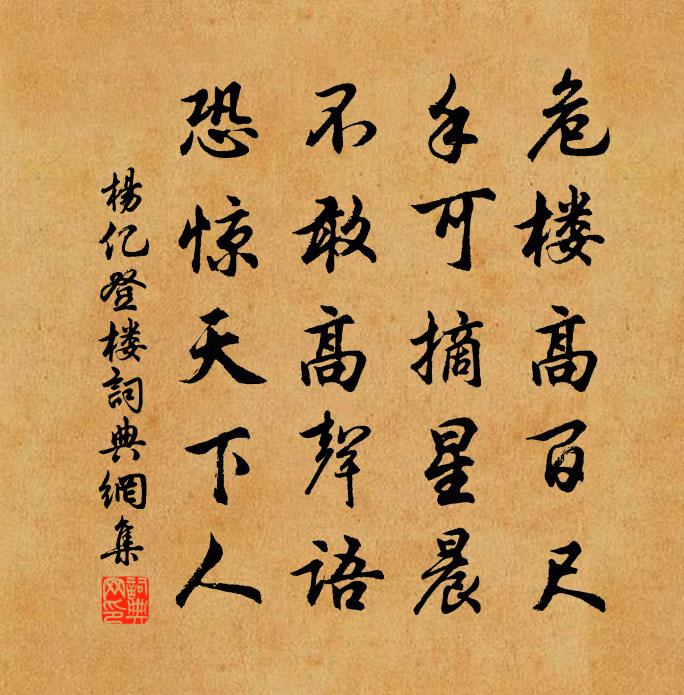 危楼高百尺
手可摘星晨
不敢高聲语
恐惊天下人
楊亿登楼詞典網集
詞典网印